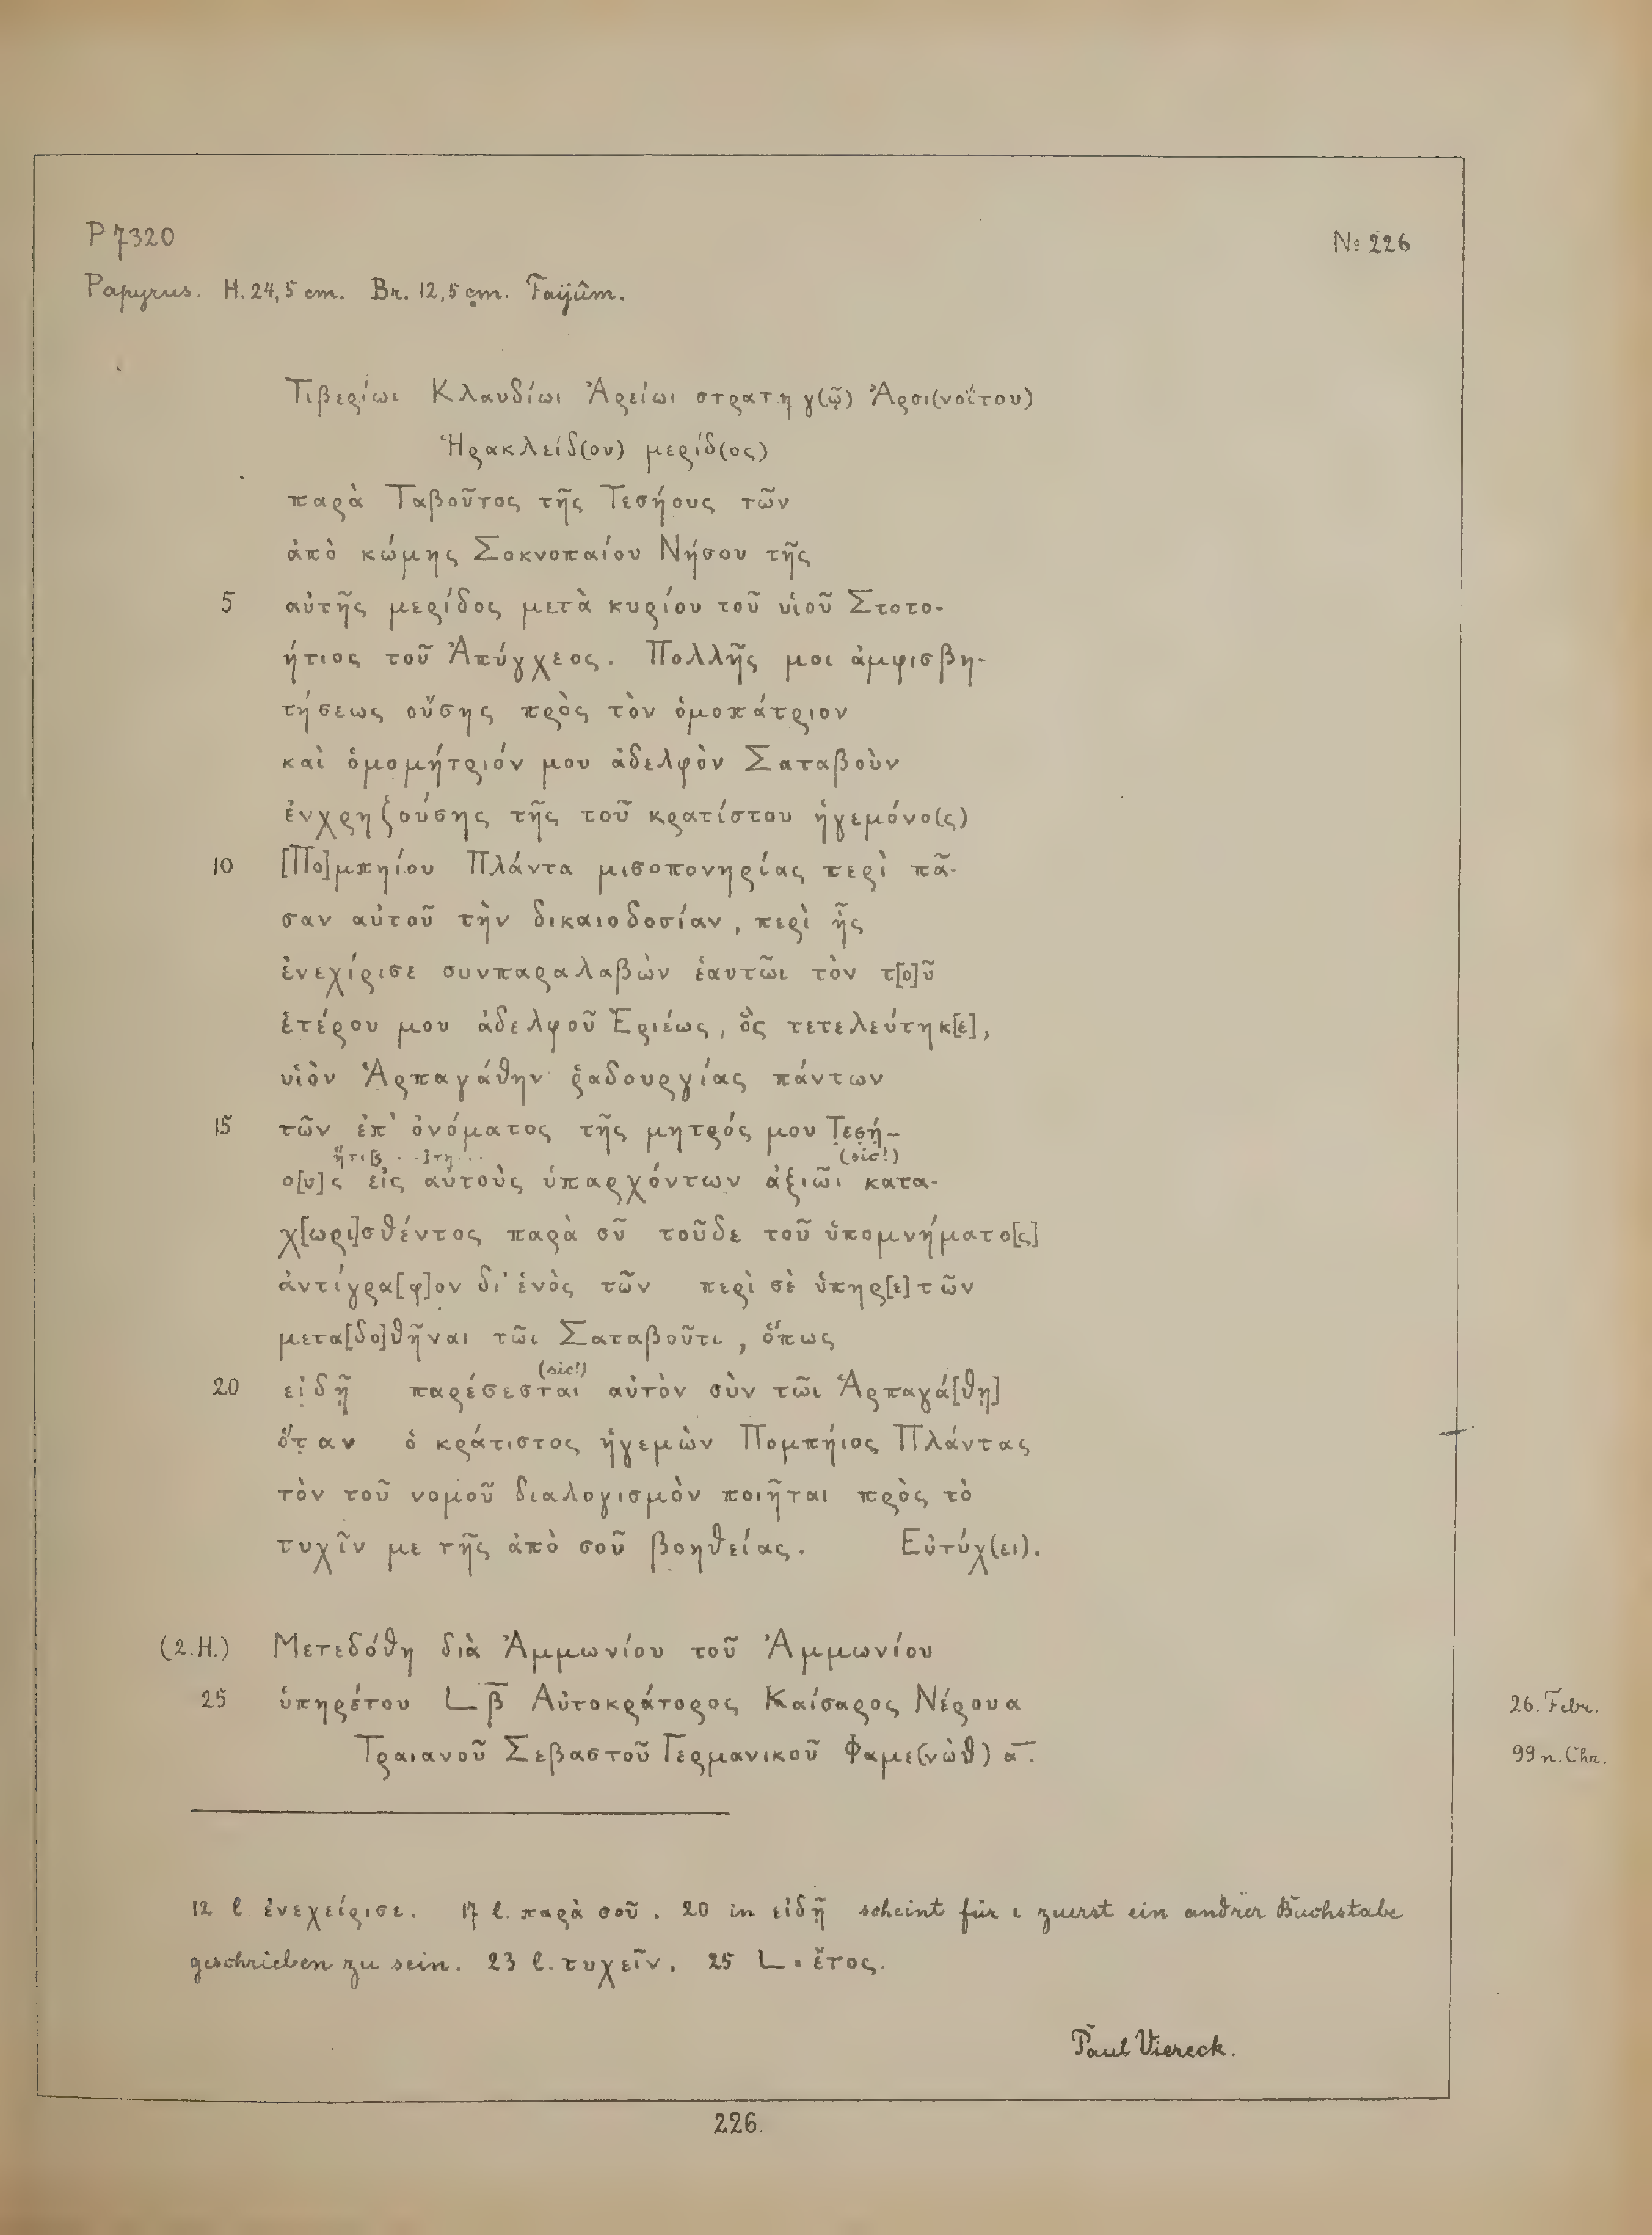 P 7320
No 226
Papyrus. H. 24,5 cm. Br. 12,5 cm. Faijûm.
Τιβερίωι Κλαυδίωι Ἀρείωι στρατηγ(ῷ) Ἀρσι(νοΐτου)
Ἡρακλείδ(ου) μερίδ(ος)
παρὰ Ταβοῦτος τῆς Τεσήους τῶν
ἀπὸ κώμης Σοκνοπαίου Νήσου τῆς
5 αὐτῆς μερίδος μετὰ κυρίου τοῦ υἱοῦ Στοτο-
ήτιος τοῦ Ἀπύγχεος. Πολλῆς μοι ἀμφισβη-
τήσεως οὔσης πρὸς τὸν ὁμοπάτριον
καὶ ὁμομήτριόν μου ἀδελφὸν Σαταβοὺν
ἐνχρηζούσης τῆς τοῦ κρατίστου ἡγεμόνο(ς)
10 [Πο]μπηίου Πλάντα μισοπονηρίας περὶ πᾶ-
σαν αὐτοῦ τὴν δικαιοδοσίαν, περὶ ἧς
ἐνεχίρισε συνπαραλαβὼν ἑαυτῶι τὸν τ[ο]ῦ
ἑτέρου μου ἀδελφοῦ Ἑριέως, ὃς τετελεύτηκ[ε],
υἱὸν Ἁρπαγάθην ῥαδουργίας πάντων
15 τῶν ἐπ' ὀνόματος τῆς μητρός μου Τ̣ε̣σ̣ή̣-
ἥτι[ς . .]τη... (sic!)
ο[υ]ς εἰς αὐτοὺς ὑπαρχόντων ἀξιῶι κατα-
χ[ωρι]σθέντος παρὰ σῦ τοῦδε τοῦ ὑπομνήματο[ς]
ἀντίγρα[φ]ον δι' ἑνὸς τῶν περὶ σὲ ὑπηρ[ε]τῶν
μετα[δο]θῆναι τῶι Σαταβοῦτι, ὅπως
(sic!)
20 εἰδῇ παρέσεσται αὐτὸν σὺν τῶι Ἁρπαγά[θῃ]
ὅτ̣αν ὁ κράτιστος ἡγεμὼν Πομπήιος Πλάντας
τὸν τοῦ νομοῦ διαλογισμὸν ποιῆται πρὸς τὸ
τυχῖν με τῆς ἀπὸ σοῦ βοηθείας. Εὐτύχ(ει).
(2. H.) Μετεδόθη διὰ Ἀμμωνίου τοῦ Ἀμμωνίου
25 ὑπηρέτου L β̅ Αὐτοκράτορος Καίσαρος Νέρουα
26. Febr.
Τραιανοῦ Σεβαστοῦ Γερμανικοῦ Φαμε(νὼθ) α̅.
99 n. Chr.
12 l. ἐνεχείρισε. 17 l. παρὰ σοῦ. 20 in εἰδῇ scheint für ι zuerst ein andrer Buchstabe
geschrieben zu sein. 23 l. τυχεῖν. 25 L = ἔτος.
Paul Viereck.
226.